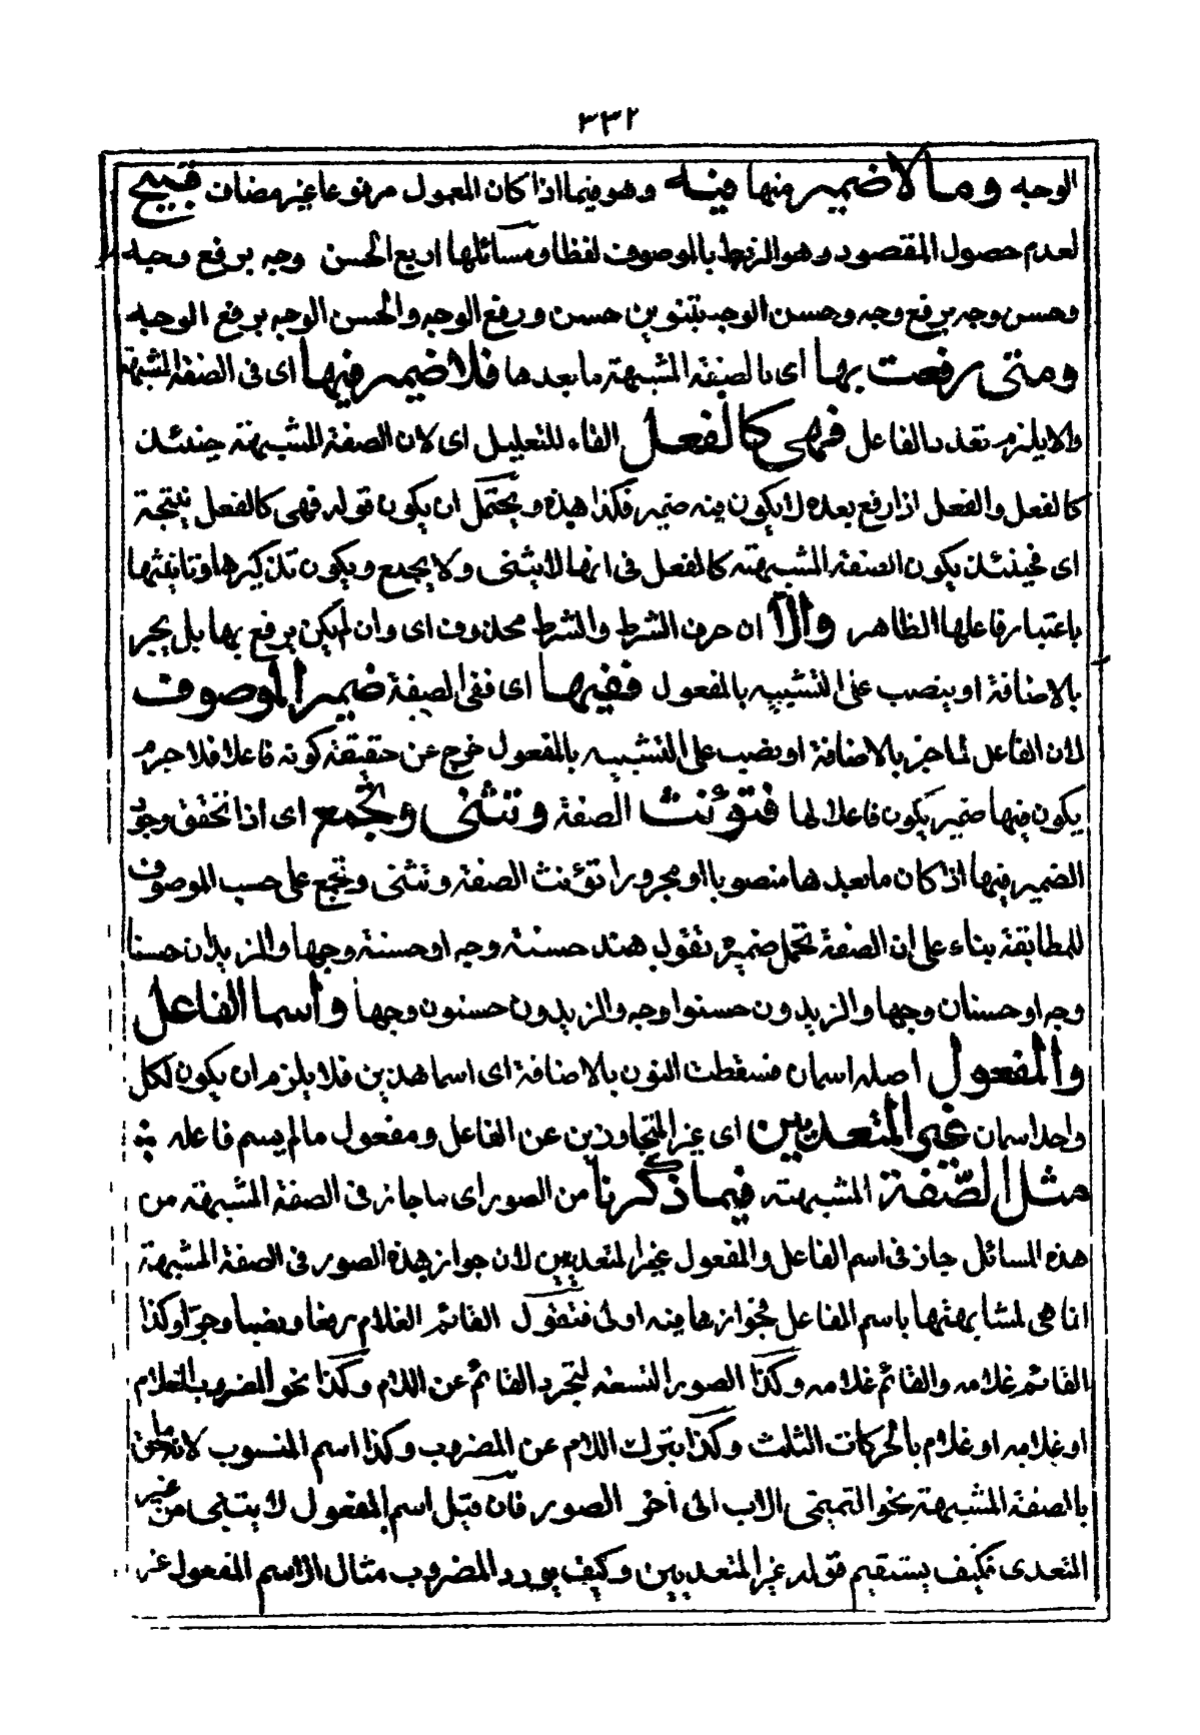 ٣٣٢
الوجه وما لا ضمير منها فيه وهو فيما اذا كان المعمول مرفوعا غير مضاف قبيح
لعدم حصول المقصود وهو الربط بالموصوف لفظا ومسائلها اربع الحسن وجه برفع وجه
وحسن وجه برفع وجه وحسن الوجه بتنوين حسن ورفع الوجه والحسن الوجه برفع الوجه
ومتى رفعت بها اى بالصفة المشبهة ما بعدها فلا ضمير فيها اى فى الصفة المشبهة
والا يلزم تعدد الفاعل فهى كالفعل الفاء للتعليل اى لان الصفة المشبهة حينئذ
كالفعل والفعل اذا رفع بعده لا يكون فيه ضمير فكذا هذه ويحتمل ان يكون قوله فهى كالفعل نتيجة
اى فحينئذ يكون الصفة المشبهة كالفعل فى انها لا يثنى ولا يجمع ويكون تذكيرها وتانيثها
باعتبار فاعلها الظاهر والا ان حرف الشرط والشرط محذوف اى وان لم يكن يرفع بها بل يجر
بالاضافة او ينصب على التشبيه بالمفعول ففيها اى ففى الصفة ضمير الموصوف
لان الفاعل لما جر بالاضافة او نصب على التشبيه بالمفعول خرج عن حقيقة كونه فاعلا فلا جرم
يكون فيها ضمير يكون فاعلا لها فتؤنث الصفة وتثنى وتجمع اى اذا تحقق وجود
الضمير فيها اذا كان ما بعدها منصوبا او مجرورا تؤنث الصفة وتثنى وتجمع على حسب الموصوف
للمطابقة بناء على ان الصفة تحمل ضميره تقول هند حسنة وجه او حسنة وجها والزيدان حسنا
وجه او حسنان وجها والزيدون حسنوا وجه والزيدون حسنون وجها واسما الفاعل
والمفعول اصله اسمان فسقطت النون بالاضافة اى اسما هذين فلا يلزم ان يكون لكل
واحد اسمان غير المتعديين اى غير المتجاوزين عن الفاعل ومفعول ما لم يسم فاعله
مثل الصفة المشبهة فيما ذكرنا من الصور اى ما جاز فى الصفة المشبهة من
هذه المسائل جاز فى اسم الفاعل والمفعول غير المتعديين لان جواز هذه الصور فى الصفة المشبهة
انما هى لمشابهتها باسم الفاعل فجوازها فيه اولى فتقول القائم الغلام رفعا ونصبا وجرا وكذا
القائم غلامه والقائم غلامه وكذا الصور التسعة لتجرد القائم عن اللام وكذا نحو المضروب الغلام
او غلامه او غلام بالحركات الثلث وكذا بترك اللام عن المضروب وكذا اسم المنسوب لانه ملحق
بالصفة المشبهة نحو التميمى الاب الى آخر الصور فان قيل اسم المفعول لا يبتنى من غير
المتعدى فكيف يستقيم قوله غير المتعديين وكيف يورد المضروب مثال الاسم المفعول غير